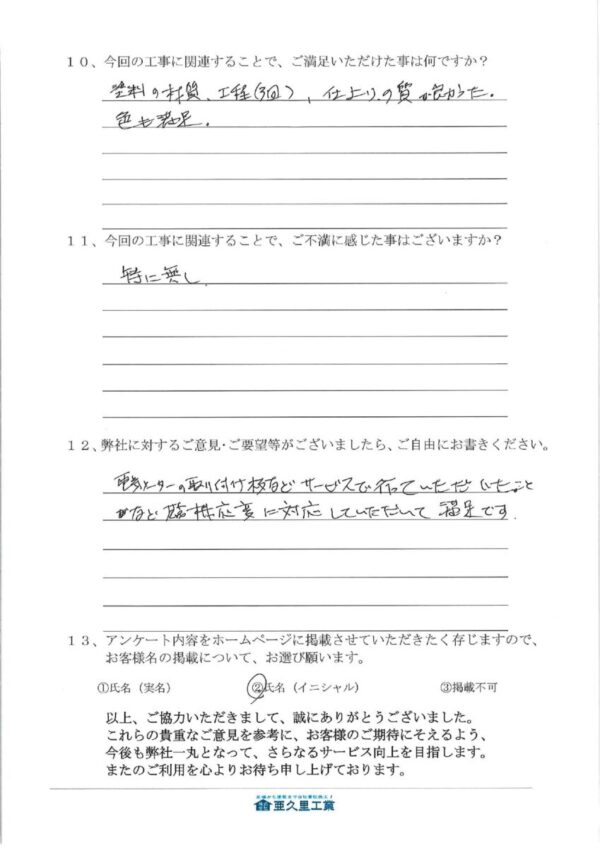 10、今回の工事に関連することで、ご満足いただけた事は何ですか？
塗料の材質、工程(3回)、仕上りの質が良かった。
色も満足。
11、今回の工事に関連することで、ご不満に感じた事はございますか？
特に無し
12、弊社に対するご意見・ご要望等がございましたら、ご自由にお書きください。
電気メーターの取り付け板などサービスで行っていただいたこと
など臨機応変に対応していただいて満足です
13、アンケート内容をホームページに掲載させていただきたく存じますので、
お客様名の掲載について、お選び願います。
①氏名（実名） ②氏名（イニシャル） ③掲載不可
以上、ご協力いただきまして、誠にありがとうございました。
これらの貴重なご意見を参考に、お客様のご期待にそえるよう、
今後も弊社一丸となって、さらなるサービス向上を目指します。
またのご利用を心よりお待ち申し上げております。
亜久里工業